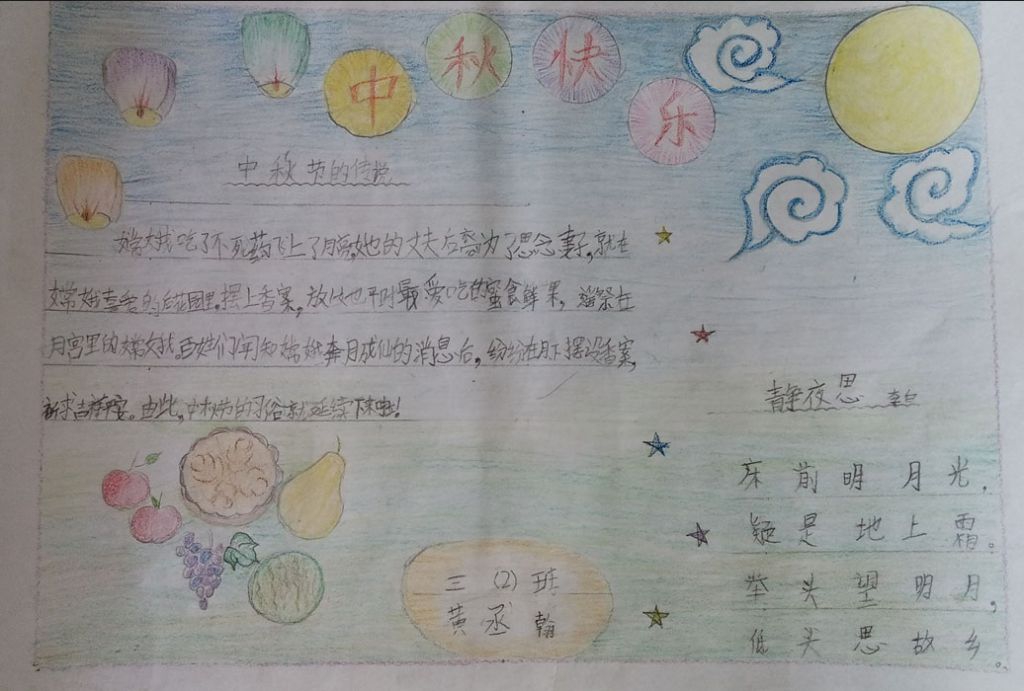 中秋快乐
中秋节的传说
嫦娥吃了不死药飞上了月宫,她的丈夫后裔为了思念妻子,就在
嫦娥喜舍的后花园里.摆上香案,放上她平时最爱吃的蜜食鲜果,遥祭在
月宫里的嫦娥.百姓们闻知嫦娥奔月成仙的消息后,纷纷在月下摆设香案,
祈求吉祥平安。由此,中秋节的习俗就延续下来啦!
静夜思 李白
床前明月光,
疑是地上霜。
举头望明月,
低头思故乡。
三(2)班
黄丞翰